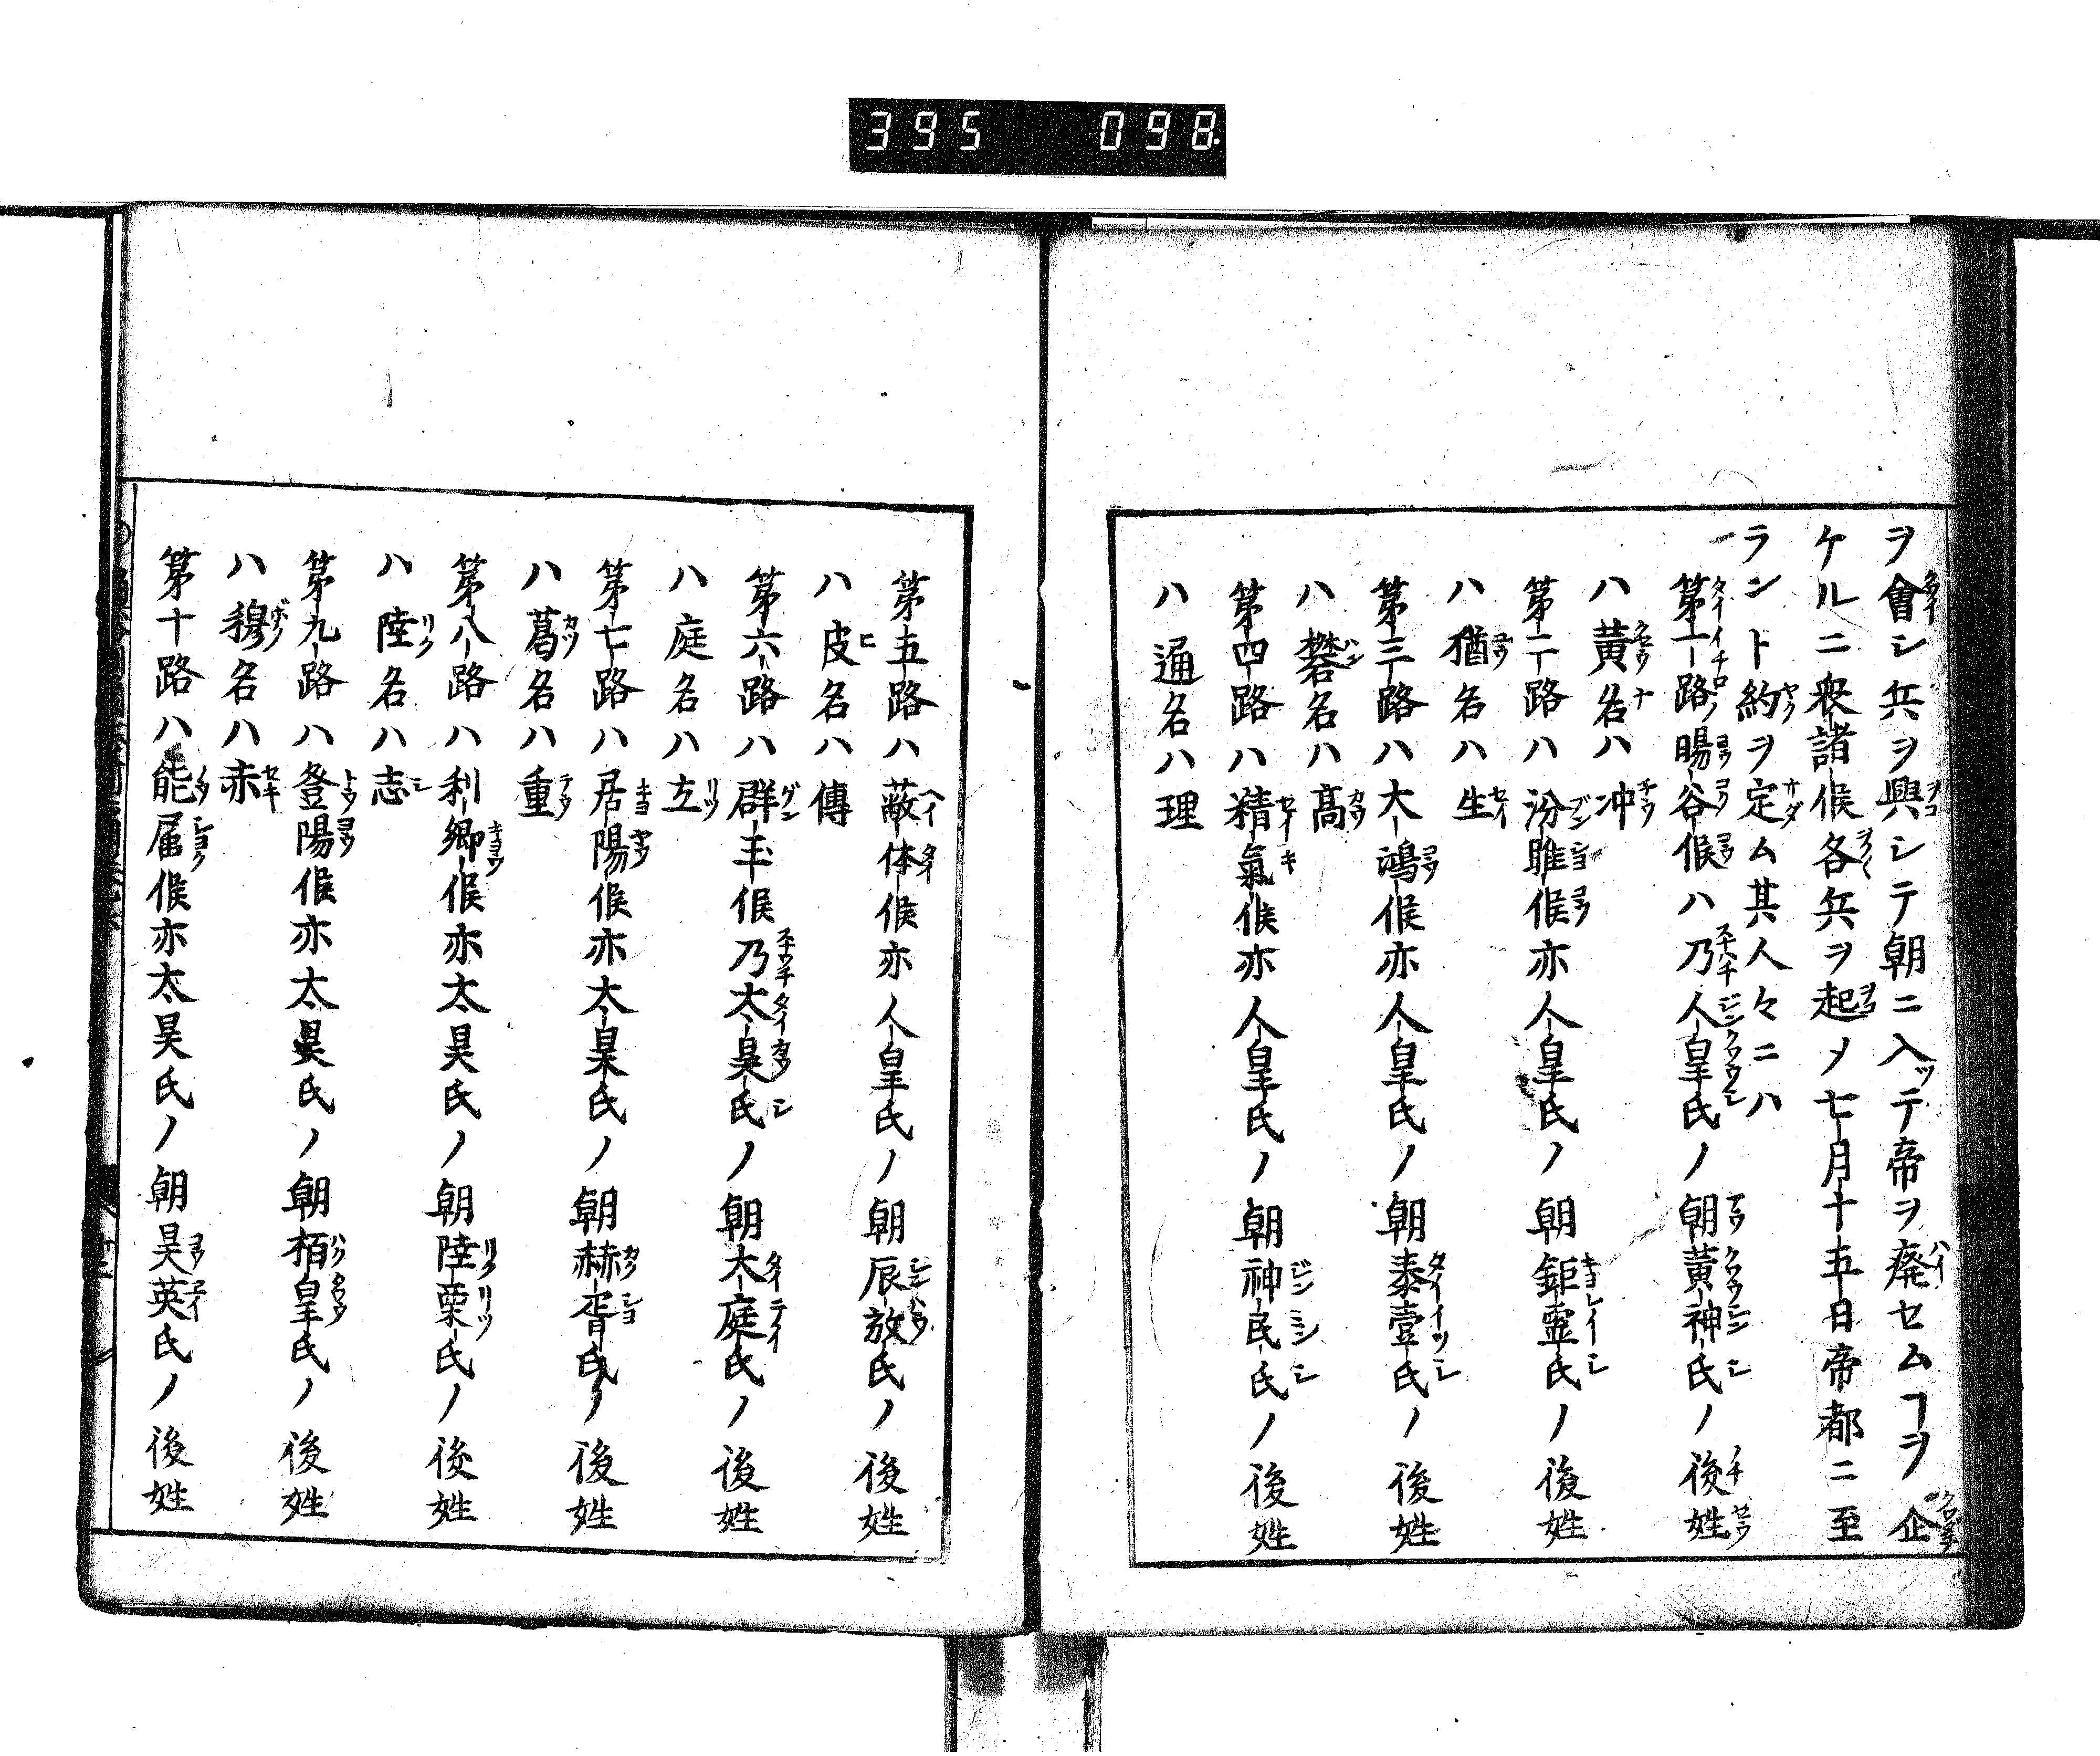 395 098
ヲ會シ兵ヲ興シテ朝ニ入ッテ帝ヲ癈セムヿヲ企
ケルニ衆諸侯各兵ヲ起メ七月十五日帝都ニ至
ラント約ヲ定ム其人々ニハ
一第一路ノ暘谷侯ハ乃人皇氏ノ朝黃神氏ノ後姓
ハ黃名ハ冲
第二路ハ汾睢侯亦人皇氏ノ朝鉅靈氏ノ後姓
ハ猶名ハ生
第三路ハ大鴻侯亦人皇氏ノ朝泰壹氏ノ後姓
ハ礬名ハ高
第四路ハ精氣侯亦人皇氏ノ朝神民氏ノ後姓
ハ通名ハ理
第五路ハ蔽体侯亦人皇氏ノ朝辰放氏ノ後姓
ハ皮名ハ傳
第六路ハ群玉侯乃太昊氏ノ朝大庭氏ノ後姓
ハ庭名ハ立
第七路ハ居陽侯亦太昊氏ノ朝赫胥氏ノ後姓
ハ葛名ハ重
第八路ハ利郷侯亦太昊氏ノ朝陸栗氏ノ後姓
ハ陸名ハ志
第九路ハ登陽侯亦太昊氏ノ朝栢皇氏ノ後姓
ハ穆名ハ赤
第十路ハ能屇侯亦太昊氏ノ朝昊英氏ノ後姓